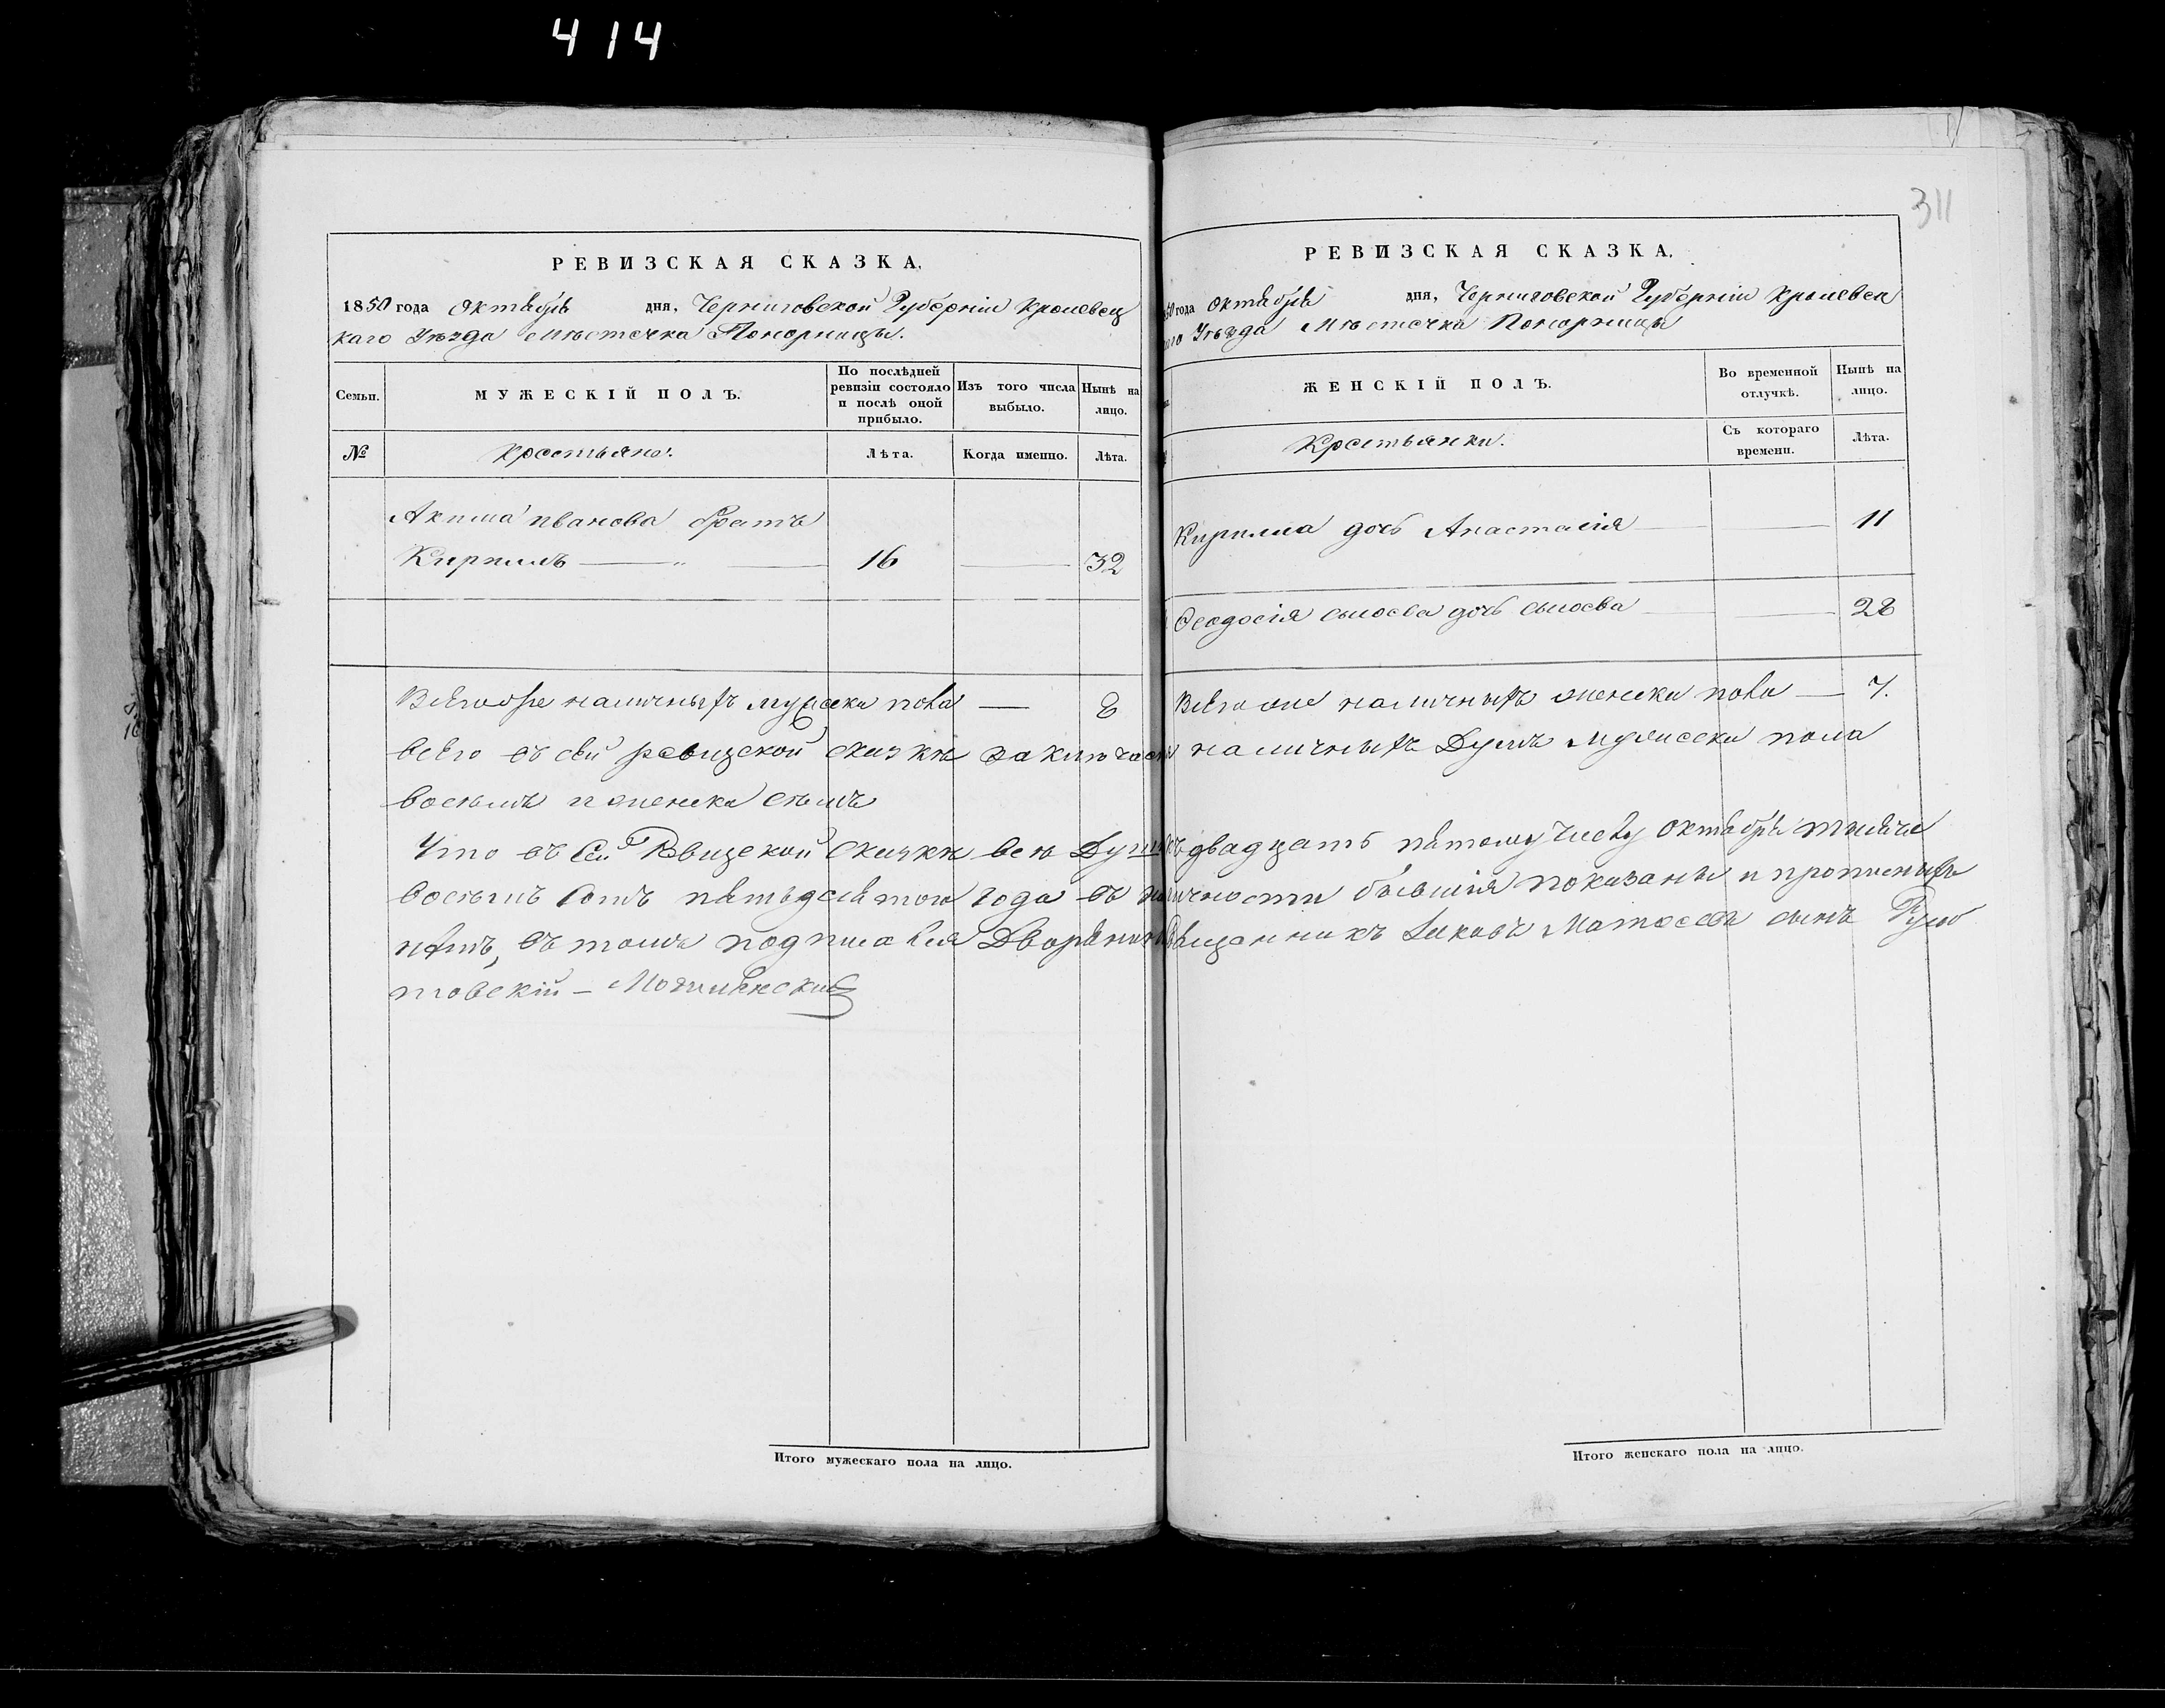 414
311
РЕВИЗСКАЯ СКАЗКА.
1850 года октября дня, Черниговской Губерніи Кролевец
каго Уѣзда Мѣстечка Понорницы.
Семьи.
МУЖЕСКІЙ ПОЛЪ.
По послѣдней
ревизіи состояло
и послѣ оной
прибыло.
Изъ того числа
выбыло.
Нынѣ на
лицо.
№
Крестьяне.
Лѣта.
Когда именно.
Лѣта.
Акима Иванова братъ
Кирилъ 16 32
Всего наличныхъ мужеска пола — 8
РЕВИЗСКАЯ СКАЗКА.
50 года октября дня, Черниговской Губерніи Кролевец
аго Уѣзда Мѣстечка Понорницы
ЖЕНСКІЙ ПОЛЪ.
Во временной
отлучкѣ.
Нынѣ на
лицо.
Крестьянки.
Съ котораго
времени.
Лѣта.
Кирилла дочь Анастасія 11
Феодосія дочь 28
Всего наличныхъ женска пола — 7.
всего въ сей ревизской сказкѣ заключается наличныхъ душъ мужеска пола
восемь и женска семь
Что въ сей Ревизской сказкѣ всѣ Души къ двадцать пятому числу октября тысяча
восемь сотъ пятьдесятого года въ наличности бывшія показаны и прописныхъ
нѣтъ, въ томъ подписался Дворянин Яковъ Матвеевъ сынъ
товскій —
Итого мужескаго пола на лицо.
Итого женскаго пола на лицо.